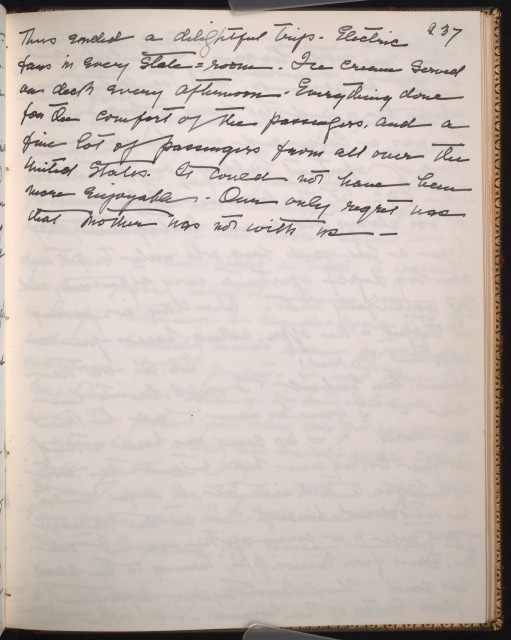 237
Thus ended a delightful trip. Electric
fans in every State=room. Ice cream served
on deck every afternoon. Everything done
for the comfort of the passengers. and a
fine lot of passengers from all over the
United States. It could not have been
more enjoyable. Our only regret was
that Mother was not with us —